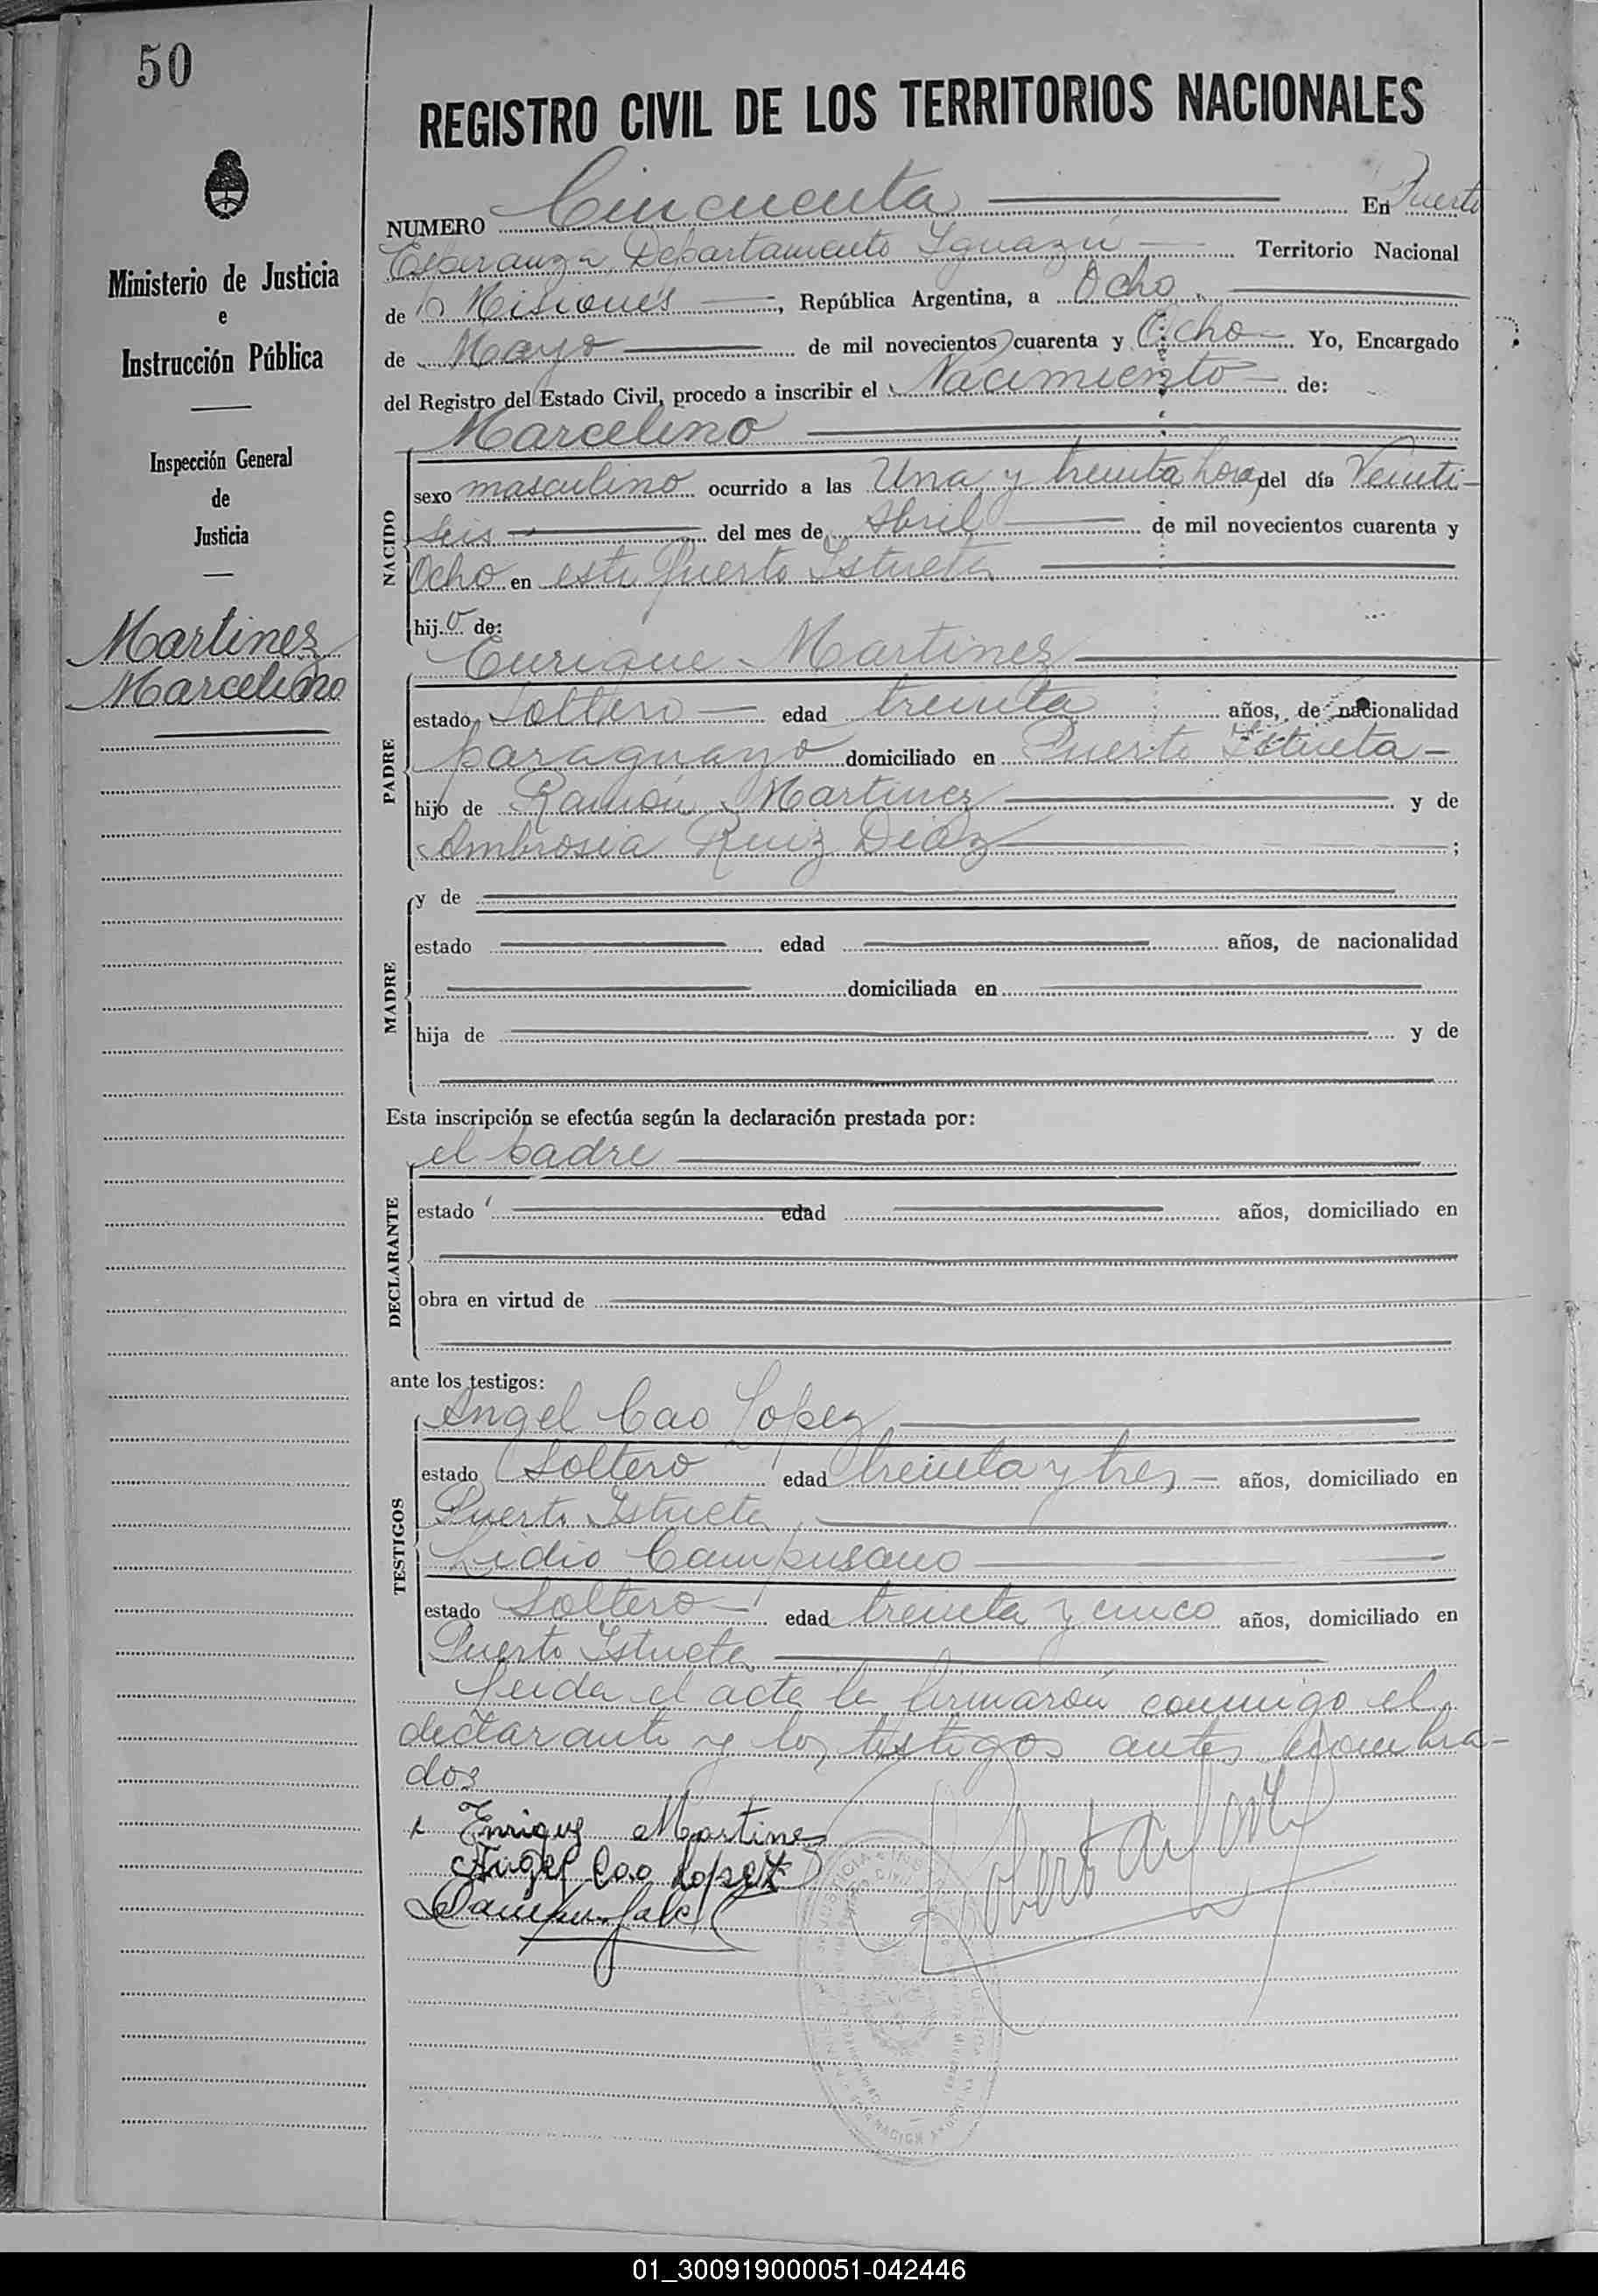 50
REGISTRO CIVIL DE LOS TERRITORIOS NACIONALES
Ministerio de Justicia
e
Instrucción Pública
Inspección General
de
Justicia
Martinez
Marcelino
NUMERO Cincuenta En Puerto
Esperanza Departamento Iguazú Territorio Nacional
de Misiones, República Argentina, a Ocho
de Mayo de mil novecientos cuarenta y Ocho Yo, Encargado
del Registro del Estado Civil, procedo a inscribir el Nacimiento de:
Marcelino
NACIDO
sexo masculino ocurrido a las Una y treinta hora del día Veinti-
seis del mes de Abril de mil novecientos cuarenta y
Ocho en este Puerto Istueta
hijo de:
Enrique Martinez
PADRE
estado Soltero edad treinta años, de nacionalidad
paraguayo domiciliado en Puerto Istueta
hijo de Ramón Martinez y de
Ambrosia Ruiz Diaz;
MADRE
y de
estado edad años, de nacionalidad
domiciliada en
hija de y de
Esta inscripción se efectúa según la declaración prestada por:
el padre
DECLARANTE
estado edad años, domiciliado en
obra en virtud de
ante los testigos:
TESTIGOS
Angel Cao Lopez
estado Soltero edad treinta y tres años, domiciliado en
Puerto Istueta
Lidio Campusano
estado Soltero edad treinta y cinco años, domiciliado en
Puerto Istueta
Leida el acta la firmarón conmigo el
declarante y los testigos antes nombra-
dos
Enrique Martinez
Angel Cao Lopez
01_300919000051-042446